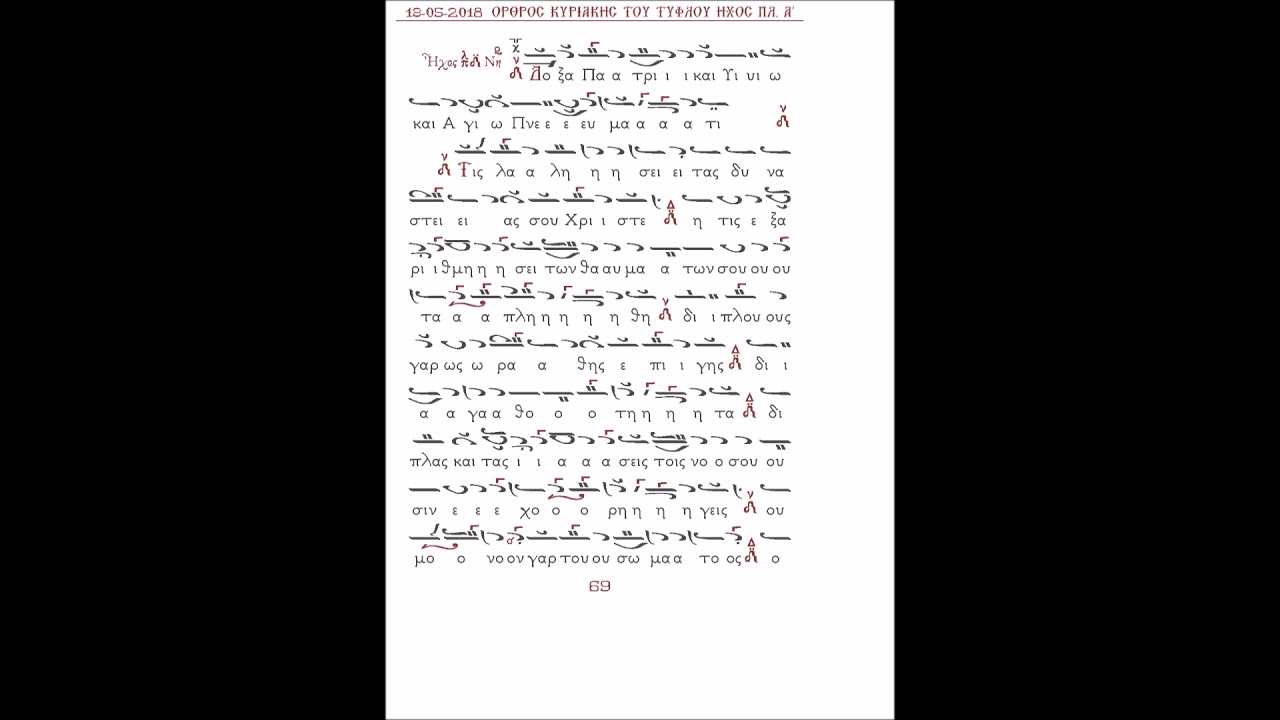 13-05-2018 ΟΡΘΡΟΣ ΚΥΡΙΑΚΗΣ ΤΟΥ ΤΥΦΛΟΥ ΗΧΟΣ ΠΛ. Α΄
Ἦχος Νη Δο ξα Πα α τρι ι ι και Υι υι ω
και Α γι ω Πνε ε ε ευ μα α α α τι
Τις λα α λη η η σει ει τας δυ να
στει ει ας σου Χρι ι στε η τις ε ξα
ρι ι θμη η η σει των θα αυ μα α των σου ου ου
τα α α πλη η η η η θη δι ι πλου ους
γαρ ως ω ρα α θης ε πι ι γης δι ι
α α γα α θο ο ο τη η η η τα δι
πλας και τας ι ι α α α σεις τοις νο ο σου ου
σιν ε ε ε χο ο ο ρη η η η γεις ου
μο ο νο ον γαρ του ου ου σω μα α το ος ο
69